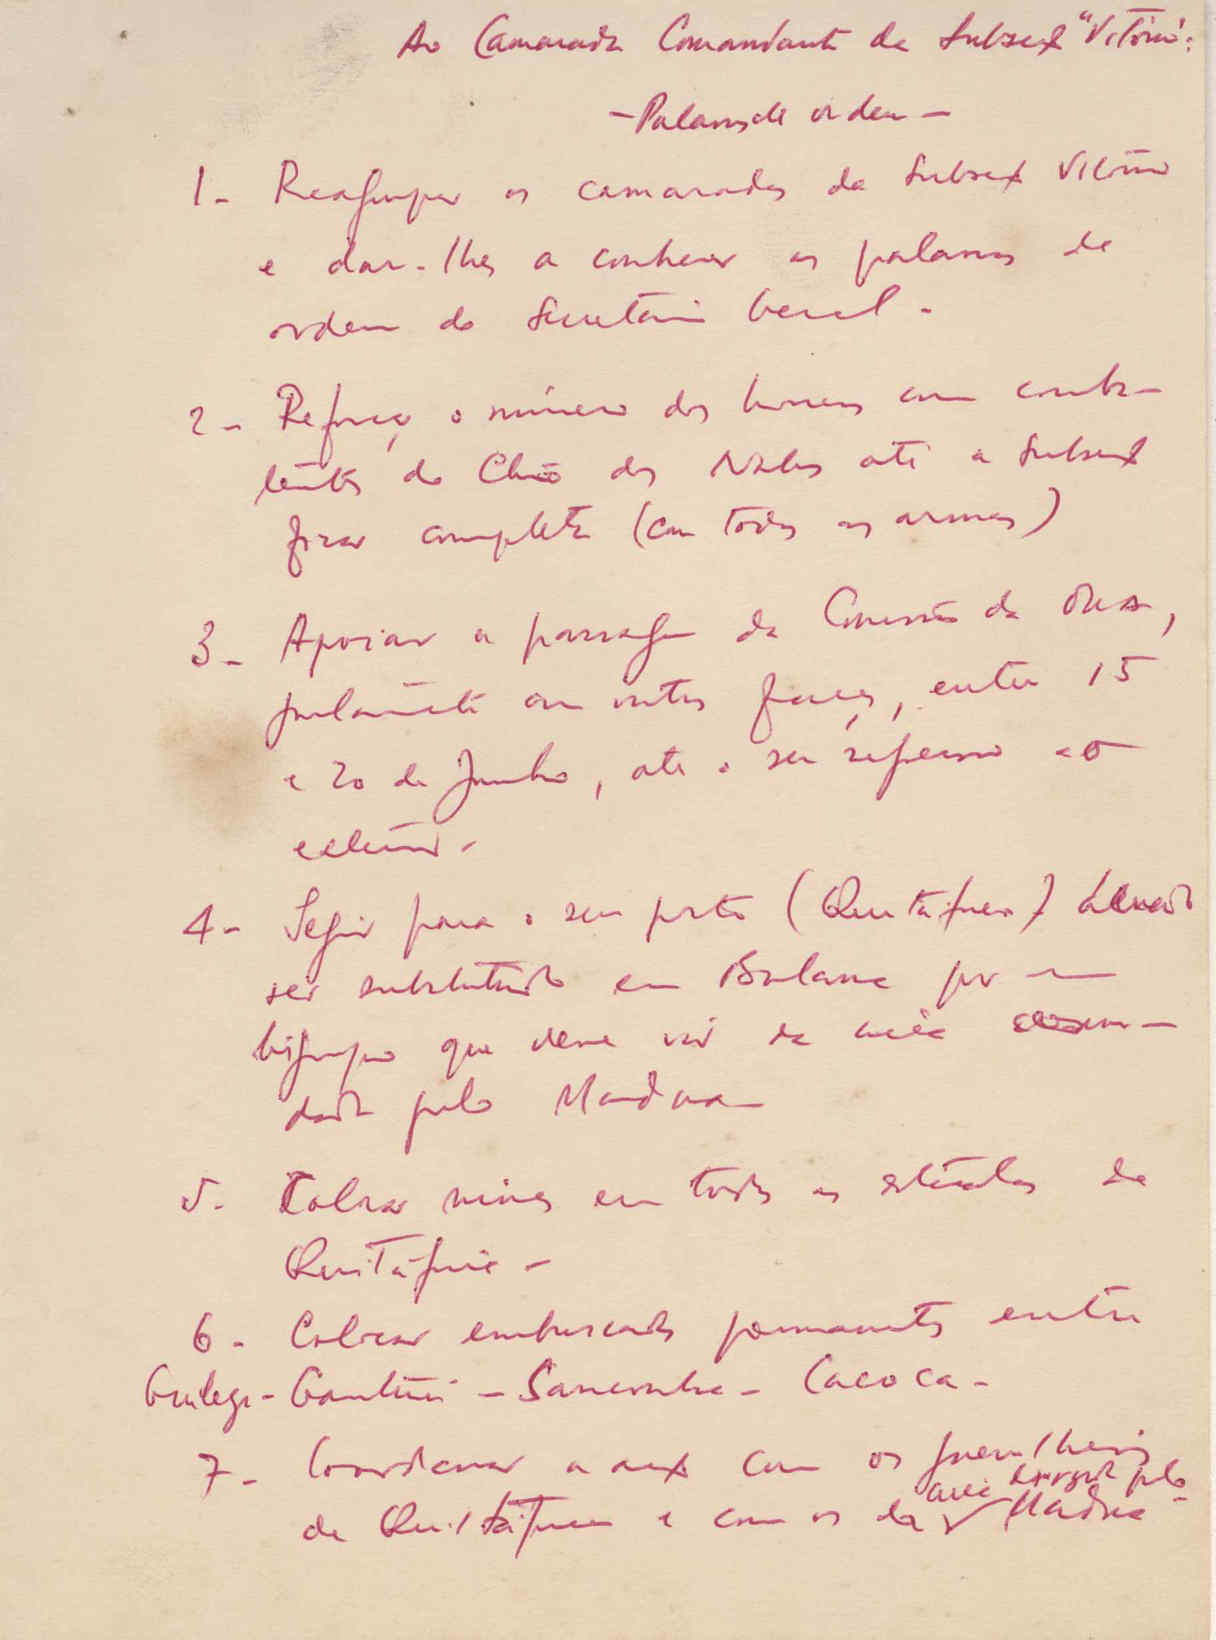 Ao Camarada Comandante da Subsex "Vitório":
- Palavras de ordem -
1 - Reagrupar os camaradas da Subsex Vitório
e dar-lhes a conhecer as palavras de
ordem do Secretário Geral.
2 - Reforçar o número dos homens com comba-
tentes do Chão dos Nalus até a Subsex
ficar completa (com todas as armas)
3 - Apoiar a passagem da Comissão da ONU,
juntamente com outras forças, entre 15
e 20 de Junho, até o seu regresso ao
exterior -
4 - Seguir para o seu posto (Quitáfine)
ser substituído em Balana por um
bigrupo que deve vir da área coman-
dada pelo
5 - Colocar minas em todas as estradas de
Quitáfine -
6 - Colocar emboscadas permanentes entre
Guilege - Gantúrè - Sanconha - Cacoca -
7 - Coordenar a acção com os guerrilheiros
de Quitáfine e com os da área dirigida pelo